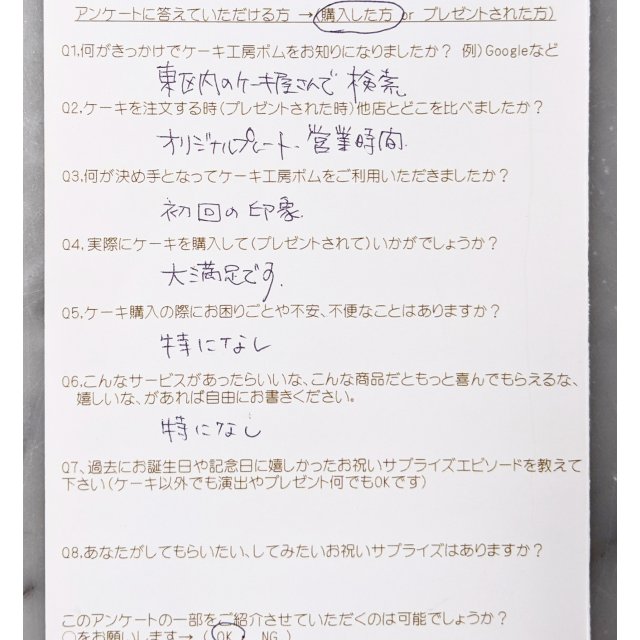 アンケートに答えていただける方 →(購入した方 or プレゼントされた方)
Q1,何がきっかけでケーキ工房ボムをお知りになりましたか? 例)Googleなど
東区内のケーキ屋さんで 検索
Q2,ケーキを注文する時(プレゼントされた時)他店とどこを比べましたか?
オリジナルプレート、営業時間.
Q3,何が決め手となってケーキ工房ボムをご利用いただきましたか?
初回の印象.
Q4,実際にケーキを購入して(プレゼントされて)いかがでしょうか?
大満足です.
Q5,ケーキ購入の際にお困りごとや不安、不便なことはありますか?
特になし
Q6,こんなサービスがあったらいいな、こんな商品だともっと喜んでもらえるな、
嬉しいな、があれば自由にお書きください。
特になし
Q7、過去にお誕生日や記念日に嬉しかったお祝いサプライズエピソードを教えて
下さい(ケーキ以外でも演出やプレゼント何でもOKです)
Q8,あなたがしてもらいたい、してみたいお祝いサプライズはありますか?
このアンケートの一部をご紹介させていただくのは可能でしょうか?
○をお願いします→ ( OK . NG )